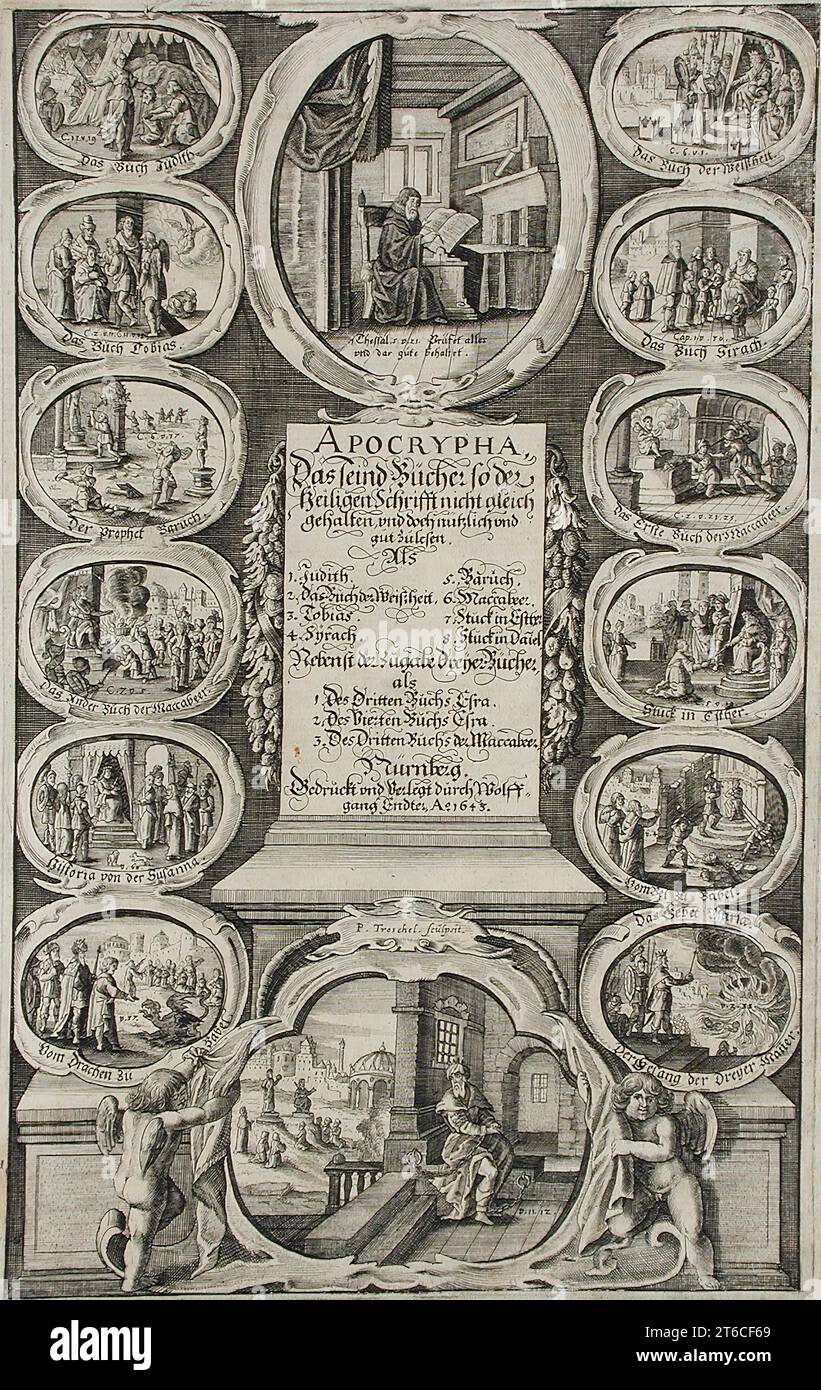 C. 13. v. 19
Das Buch Judith.
C. 6. v. 1.
Das Buch der Weisheit.
Das Buch Tobias.
1 Thessal. 5. v. 21. Prüfet alles
vnd das gute behaltet.
Das Buch Sirach.
C. 6. v. 17.
Der Prophet Baruch.
C. 2. v. 23. 25.
Das Erste Buch der Maccabeer.
APOCRYPHA,
Das seind Bücher so der
Heiligen Schrifft nicht gleich
gehalten, vnd doch nutzlich vnd
gut zulesen.
Als
1. Judith. 5. Baruch.
2. Das Buch der Weißheit. 6. Maccabeer.
3. Tobias. 7. Stuck in Esther
4. Syrach. 8. Stuck in Daniel
Nebenst der Zugabe Dreyer Bücher,
als
1. Des Dritten Buchs Esra.
2. Des Vierten Buchs Esra.
3. Des Dritten Buchs der Maccabeer.
Nürnberg.
Gedruckt vnd verlegt durch Wolff-
gang Endter, Ao 1643.
C. 7. v. 5.
Das Ander Buch der Maccabeer.
Stuck in Esther.
Historia von der Susanna.
Vom Bel zu Babel.
P. Troschel. sculpsit.
Das Gebet Asariae
Vom Drachen zu Babel.
Der Gesang der Dreyer Mäner.
v. 11. 12
alamy
Image ID: 2T6CF69
www.alamy.com